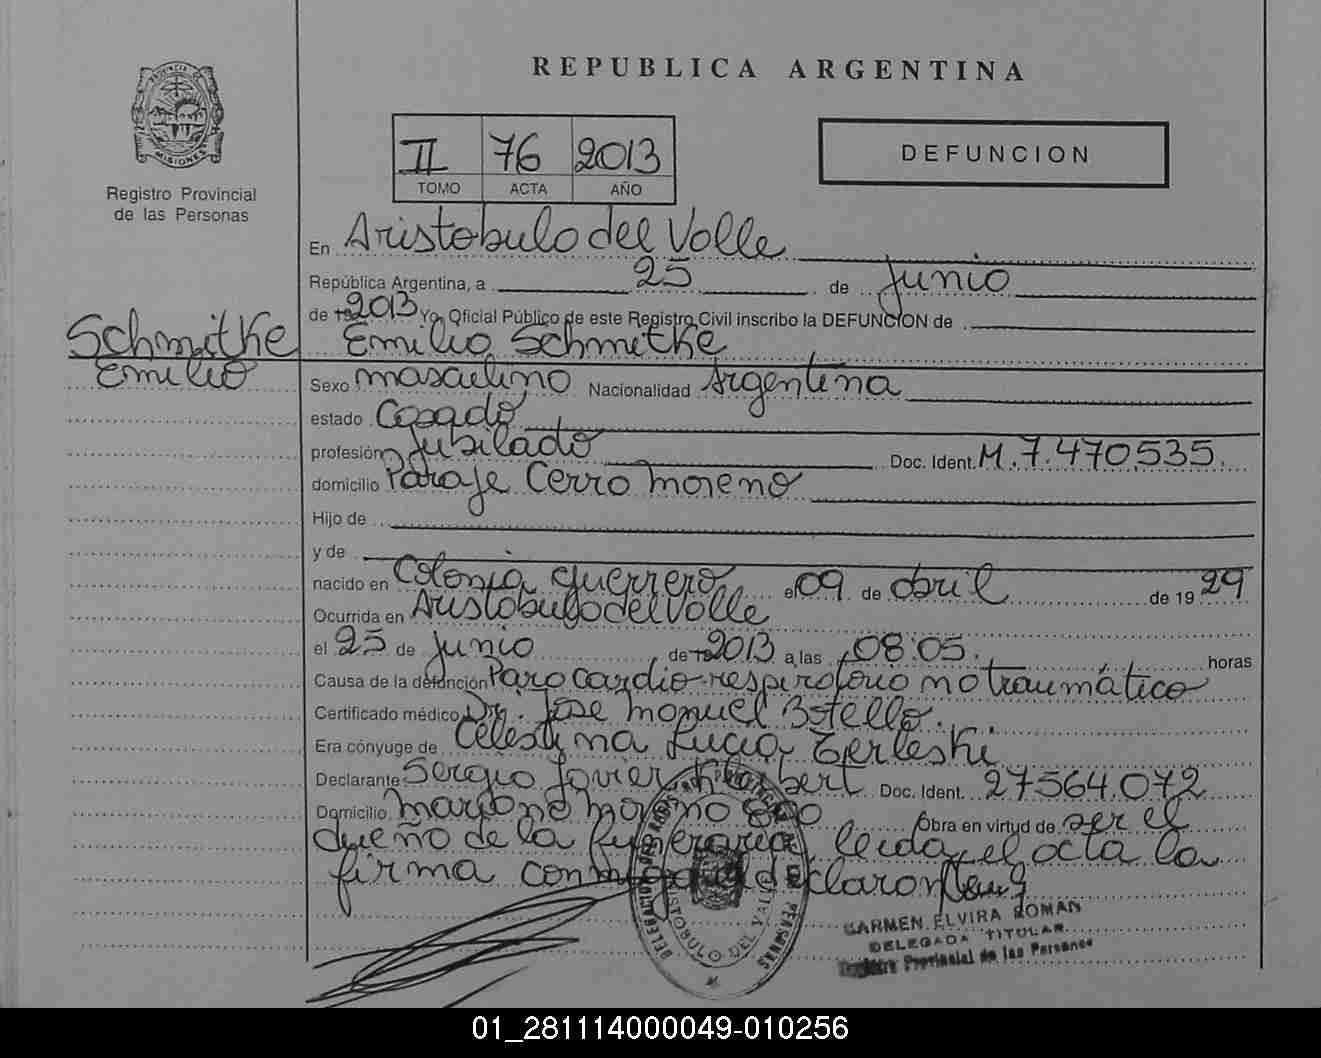 REPUBLICA ARGENTINA
PROVINCIA DE
MISIONES
Registro Provincial
de las Personas
II 76 2013
TOMO ACTA AÑO
DEFUNCION
En Aristobulo del Valle
República Argentina, a 25 de junio
de 19 2013 Yo, Oficial Público de este Registro Civil inscribo la DEFUNCION de
Schmitke
Emilio
Emilio Schmitke
Sexo masculino Nacionalidad Argentina
estado Casado
profesión Jubilado Doc. Ident. M.7.470535.
domicilio Paraje Cerro Moreno
Hijo de
y de
nacido en Colonia guerrero el 09 de abril de 19 29
Ocurrida en Aristobulo del Valle
el 25 de junio de 19 2013 a las 08:05. horas
Causa de la defunción Paro cardio-respiratorio no traumático
Certificado médico Dr. Jose Manuel Botello.
Era cónyuge de Celestina Lucia Terleski
Declarante Sergio Javier Doc. Ident. 27564.072
Domicilio mariano moreno 800 Obra en virtud de ser el
dueño de la funeraria, leida el acta la
firma conmigo el declarante
CARMEN ELVIRA ROMAN
DELEGADA TITULAR
Registro Provincial de las Personas
ARISTOBULO DEL VALLE
01_281114000049-010256